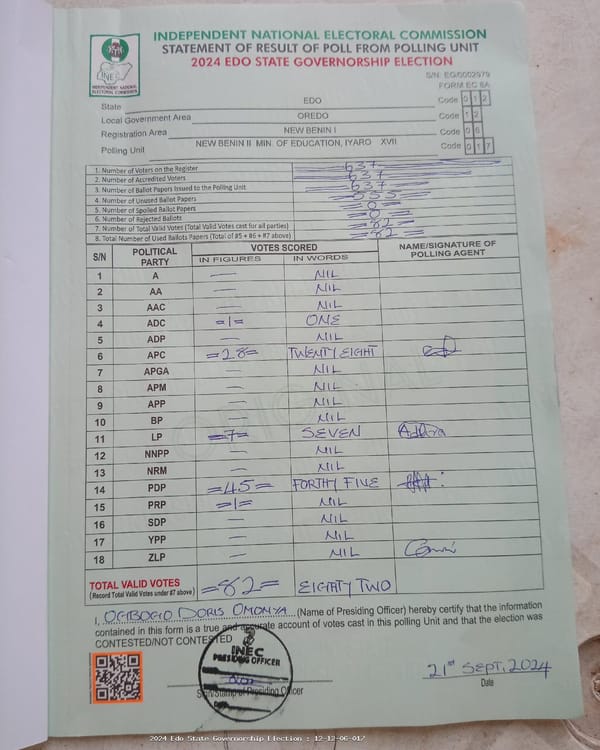 INDEPENDENT NATIONAL ELECTORAL COMMISSION
STATEMENT OF RESULT OF POLL FROM POLLING UNIT
2024 EDO STATE GOVERNORSHIP ELECTION
INEC
INDEPENDENT NATIONAL ELECTORAL COMMISSION
S/N: EG/0002979
FORM EC 8A
State EDO Code 0 1 2
Local Government Area OREDO Code 1 2
Registration Area NEW BENIN I Code 0 6
Polling Unit NEW BENIN II MIN. OF EDUCATION, IYARO XVII Code 0 1 7
1. Number of Voters on the Register =637=
2. Number of Accredited Voters =637=
3. Number of Ballot Papers Issued to the Polling Unit =637=
4. Number of Unused Ballot Papers
5. Number of Spoiled Ballot Papers =0=
6. Number of Rejected Ballots =0=
7. Number of Total Valid Votes (Total Valid Votes cast for all parties) =82=
8. Total Number of Used Ballots Papers (Total of #5 + #6 + #7 above) =82=
S/N POLITICAL PARTY VOTES SCORED NAME/SIGNATURE OF POLLING AGENT
IN FIGURES IN WORDS
1 A — NIL
2 AA — NIL
3 AAC — NIL
4 ADC =1= ONE
5 ADP — NIL
6 APC =28= TWENTY EIGHT
7 APGA — NIL
8 APM — NIL
9 APP — NIL
10 BP — NIL
11 LP =7= SEVEN
12 NNPP — NIL
13 NRM — NIL
14 PDP =45= FORTHY FIVE
15 PRP =1= NIL
16 SDP — NIL
17 YPP — NIL
18 ZLP — NIL
TOTAL VALID VOTES =82= EIGHTY TWO
(Record Total Valid Votes under #7 above)
I, OGIBOGIO DORIS OMONYA (Name of Presiding Officer) hereby certify that the information
contained in this form is a true and accurate account of votes cast in this polling Unit and that the election was
CONTESTED/NOT CONTESTED
INEC
PRESIDING OFFICER
Sign/Stamp of Presiding Officer
21st SEPT, 2024
Date
2024 Edo State Governorship Election : 12-12-06-017